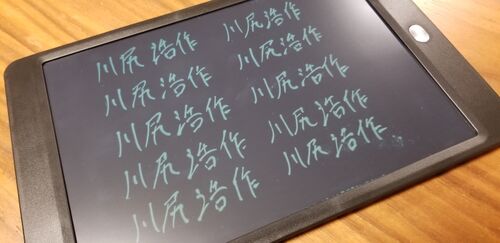 川尻浩作 川尻浩作
川尻浩作 川尻浩作
川尻浩作 川尻浩作
川尻浩作 川尻浩作
川尻浩作 川尻浩作